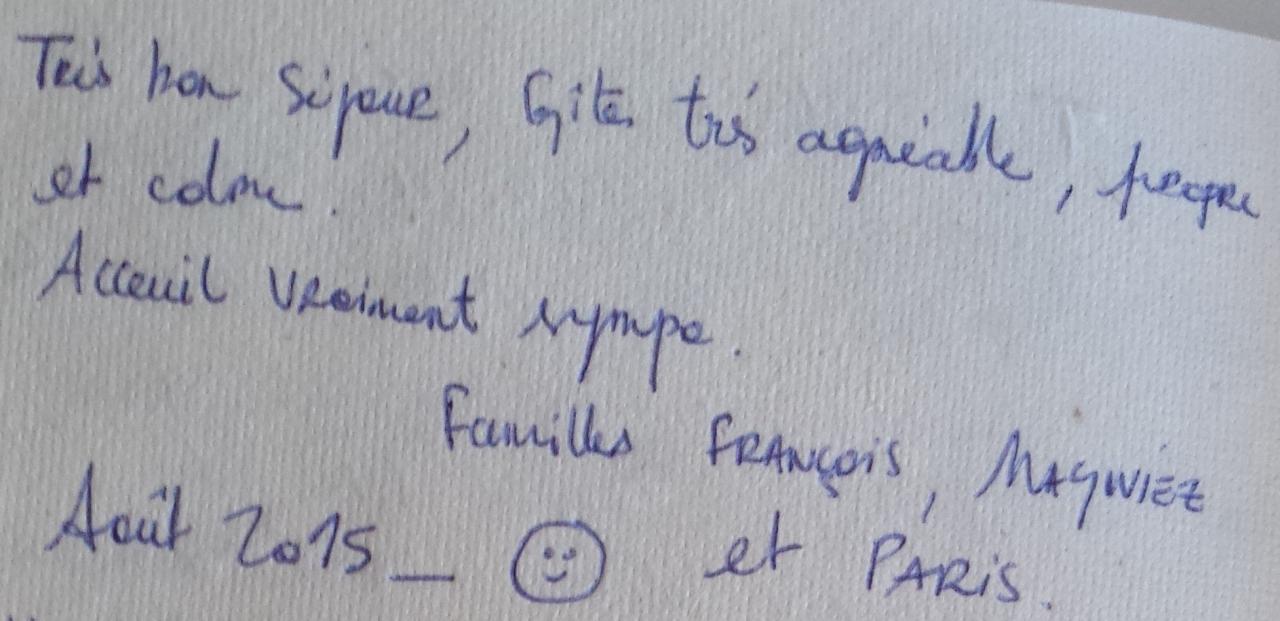 Très bon séjour, Gîte très agréable, propre
et calme.
Acceuil vraiment sympa.
Familles FRANÇOIS,
Août 2015_ et PARIS.